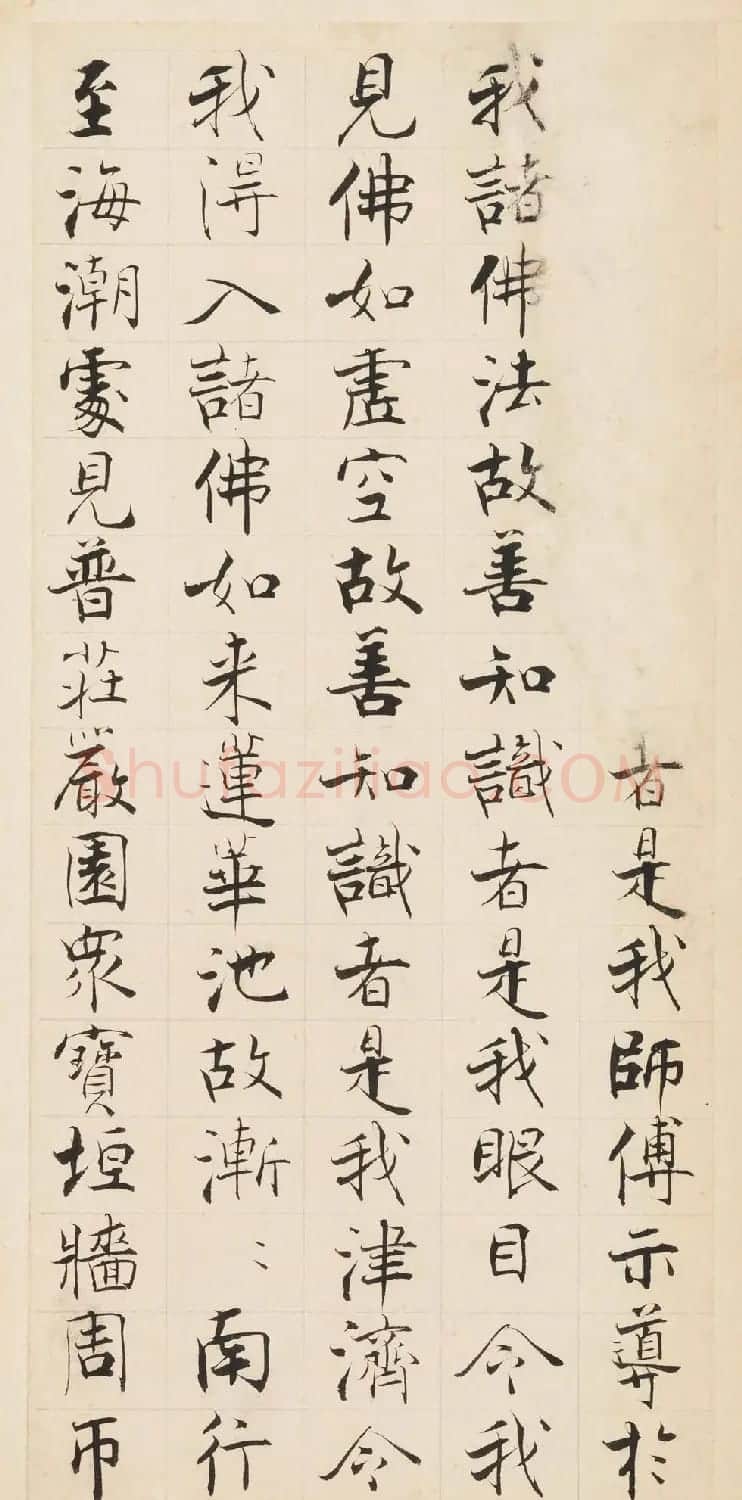 者是我師傅示導於
我諸佛法故善知識者是我眼目令我
見佛如虛空故善知識者是我津濟令
我得入諸佛如来蓮華池故漸〻南行
至海潮處見普莊嚴園衆寶垣牆周帀
Shufaziliao.COM